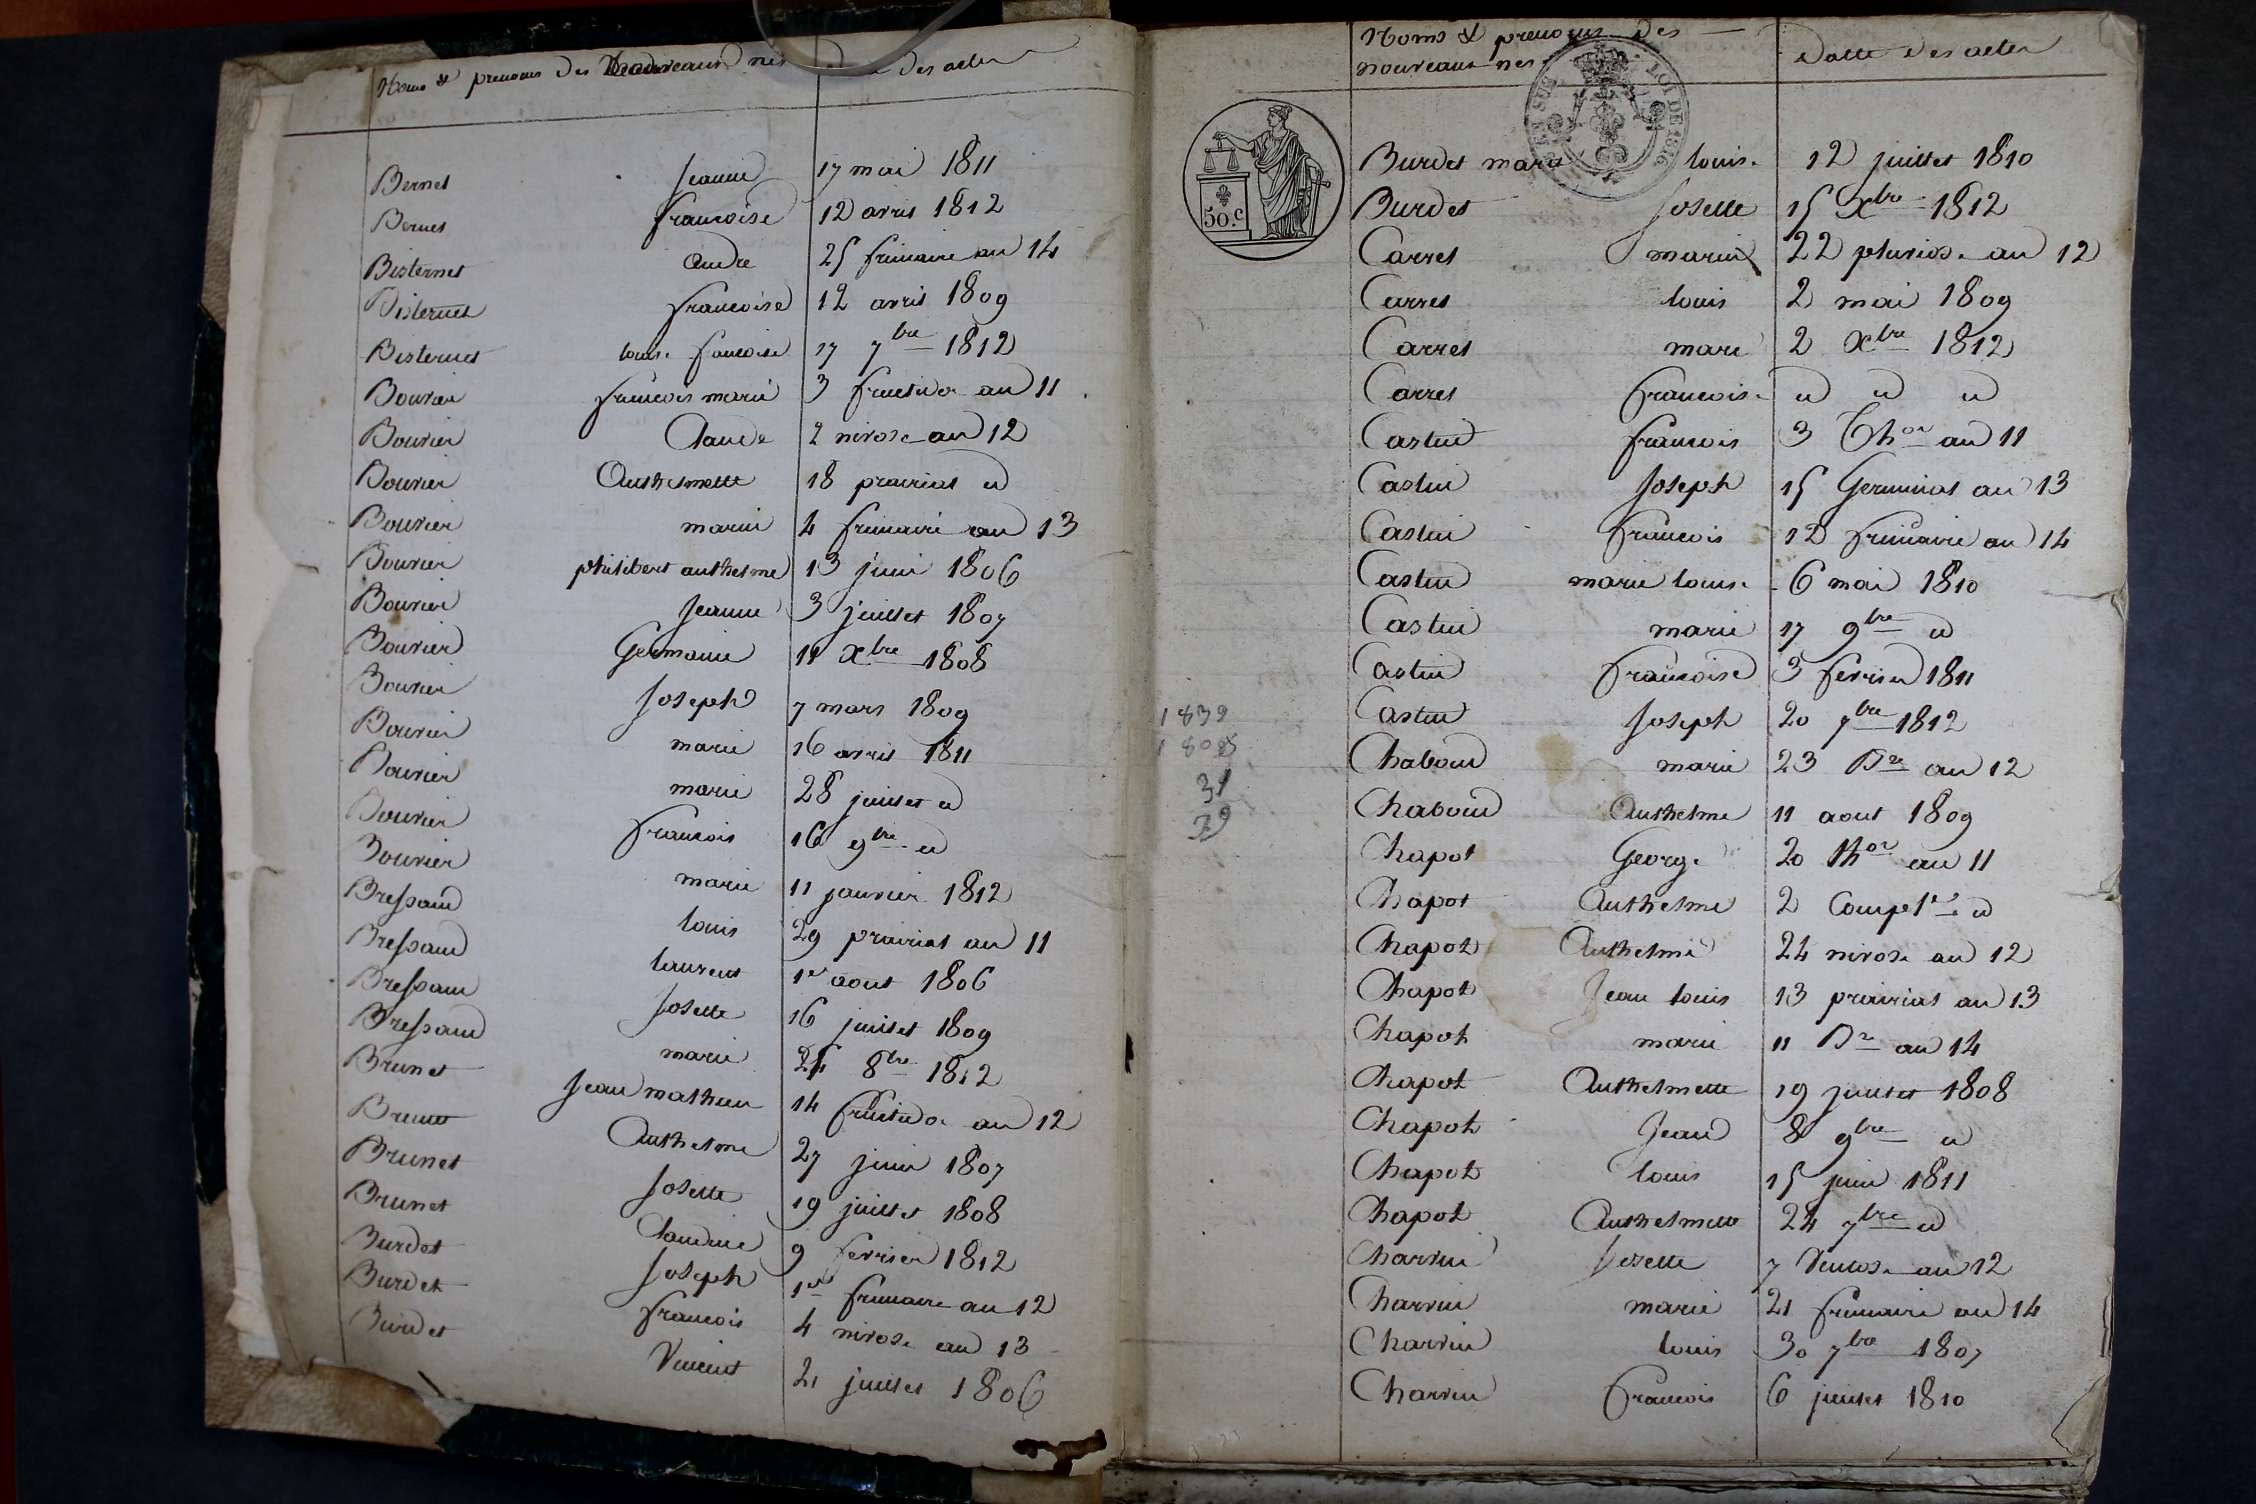 Noms & prenoms des nouveaux nés des actes
Bernet Jeanne 17 mai 1811
Bernet francoise 12 avril 1812
Bisternet andre 25 frimaire an 14
Bisternet francoise 12 avril 1809
Bisternet louise francoise 17 7bre 1812
Bouvier francois marie 3 fructidor an 11
Bouvier Claude 2 nivose an 12
Bouvier Anthelmette 18 prairial id
Bouvier marie 4 frimaire an 13
Bouvier philibert anthelme 13 juin 1806
Bouvier Jeanne 3 juillet 1807
Bouvier Germaine 11 Xbre 1808
Bouvier Joseph 7 mars 1809
Bouvier marie 16 avril 1811
Bouvier marie 28 juillet id
Bouvier francois 16 9bre id
Bouvier marie 11 janvier 1812
Bressand louis 29 prairial an 11
Bressand laurent 1er aout 1806
Bressand Josette 16 juillet 1809
Bressand marie 24 8bre 1812
Brunet Jean mathieu 14 fructidor an 12
Brunet Anthelme 27 juin 1807
Brunet Josette 19 juillet 1808
Brunet Claudine 9 fevrier 1812
Burdet Joseph 1er frimaire an 12
Burdet francois 4 nivose an 13
Burdet Vincent 21 juillet 1806
Noms & prenoms des
nouveaux nés Datte des actes
LOI DE 1816
50.c
Burdet marie louise 12 juillet 1810
Burdet Josette 15 Xbre 1812
Carrel marie 22 pluviose an 12
Carrel louis 2 mai 1809
Carrel marie 2 Xbre 1812
Carrel francoise id id id
Castin francois 3 Thor an 11
Castin Joseph 15 Germinal an 13
Castin francois 12 frimaire an 14
Castin marie louise 6 mai 1810
Castin marie 17 9bre id
Castin francoise 3 fevrier 1811
1839
Castin Joseph 20 7bre 1812
Chaboud marie 23 Bre an 12
31
Chaboud Anthelme 11 aout 1809
Chapot George 20 Thor an 11
Chapot Anthelme 2 Compl.re id
Chapot Anthelme 24 nivose an 12
Chapot Jean louis 13 prairial an 13
Chapot marie 11 Bre an 14
Chapot Anthelmette 19 juillet 1808
Chapot Jean 8 9bre id
Chapot louis 15 juin 1811
Chapot Anthelmette 24 7bre id
Charvin Josette 7 Ventose an 12
Charvin marie 21 frimaire an 14
Charvin louis 30 7bre 1807
Charvin francois 6 juillet 1810